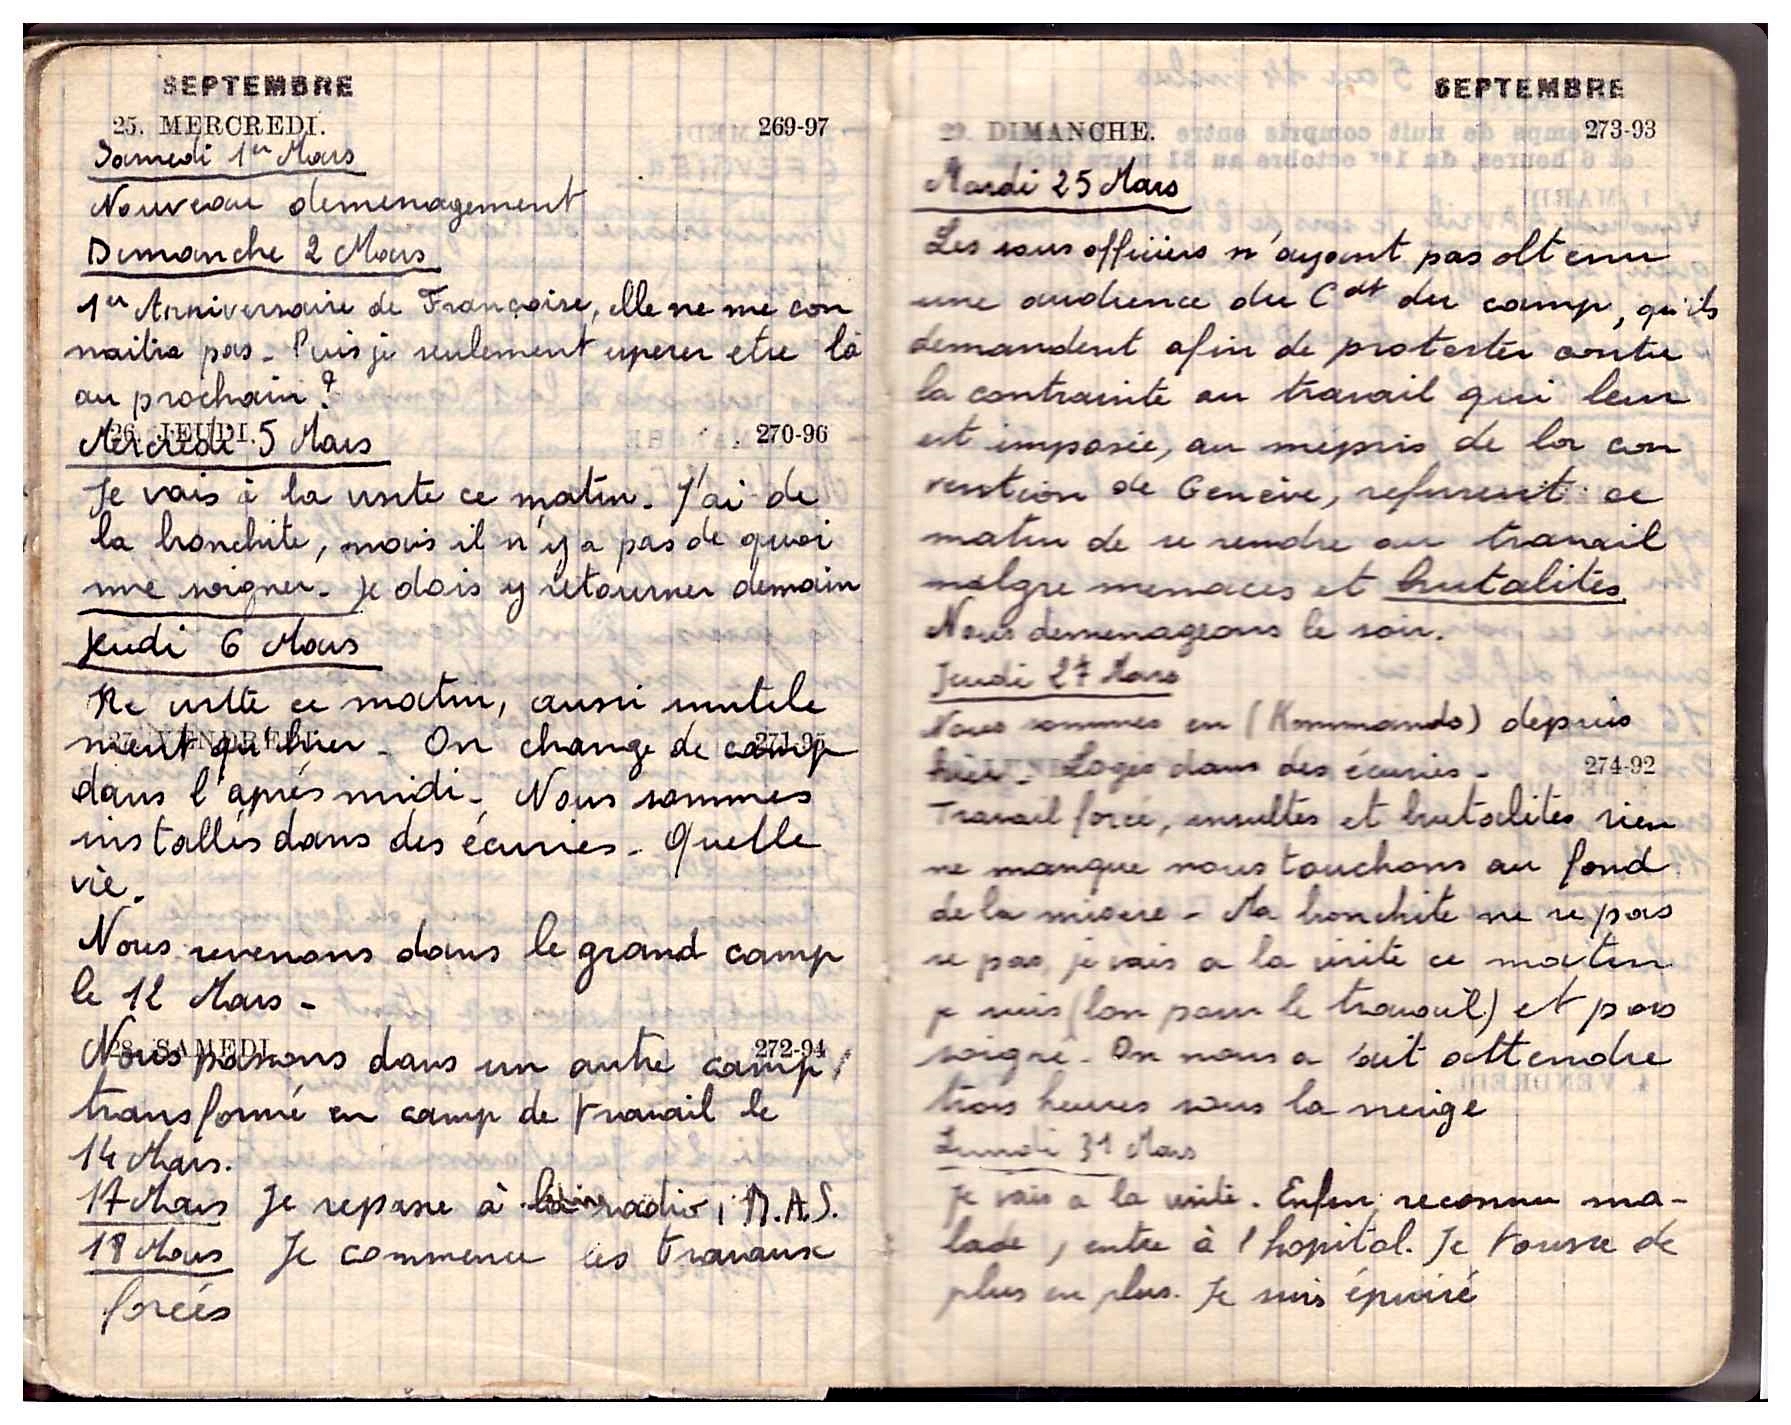 SEPTEMBRE
25. MERCREDI. 269-97
Samedi 1er Mars
Nouveau demenagement
Dimanche 2 Mars
1er Anniversaire de Françoise, elle ne me con
naitra pas - Puis je seulement esperer etre là
au prochain ?
26. JEUDI. 270-96
Mercredi 5 Mars
Je vais à la visite ce matin - J'ai de
la bronchite, mais il n'y a pas de quoi
me soigner - Je dois y retourner demain
Jeudi 6 Mars
Re visite ce matin, aussi inutile
27. VENDREDI. 271-95
ment qu'hier - On change de camp
dans l'après midi - Nous sommes
installés dans des écuries - Quelle
vie.
Nous revenons dans le grand camp
le 12 Mars -
28. SAMEDI. 272-94
Nous passons dans un autre camp,
transformé en camp de travail le
14 Mars.
17 Mars Je repasse à la radio, R.A.S.
18 Mars Je commence les travaux
forcés
SEPTEMBRE
29. DIMANCHE. 273-93
Mardi 25 Mars
Les sous officiers n'ayant pas obtenu
une audience du Cdt du camp, qu'ils
demandent afin de protester contre
la contrainte au travail qui leur
est imposée, au mépris de la con
vention de Genève, refusent ce
matin de se rendre au travail
malgre menaces et brutalités.
Nous demenageons le soir.
Jeudi 27 Mars
Nous sommes en (Kommando) depuis
hier - Logés dans des écuries - 274-92
Travail forcé, insultes et brutalités rien
ne manque nous touchons au fond
de la misere - Ma bronchite ne se pas
se pas, je vais a la visite ce matin
je suis (bon pour le travail) et pas
soigné - On nous a fait attendre
trois heures sous la neige
Lundi 31 Mars
Je vais a la visite. Enfin, reconnu ma-
lade, entre à l'hopital. Je tousse de
plus en plus. Je suis épuisé